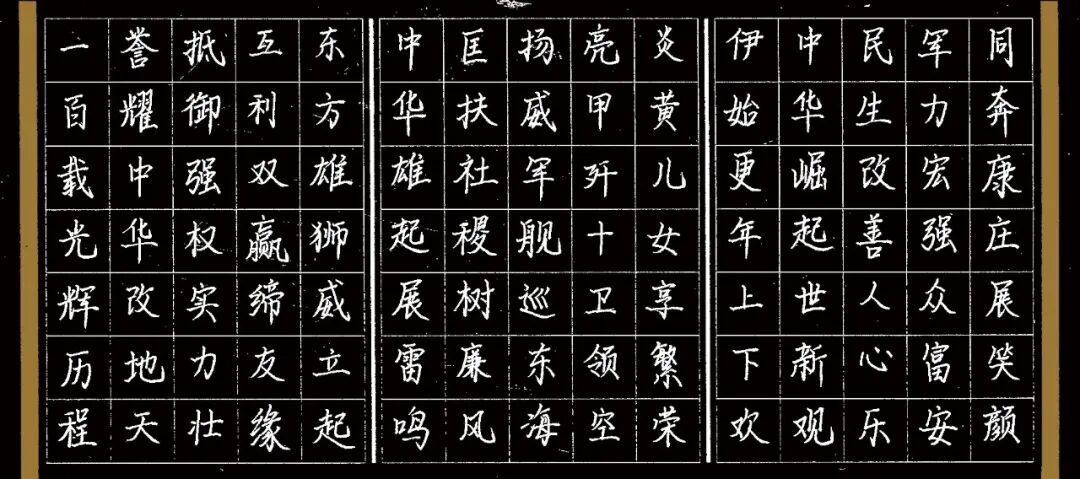 一百载光辉历程
誉耀中华改地天
抵御强权实力壮
互利双赢缔友缘
东方雄狮威立起
中华雄起展雷鸣
匡扶社稷树廉风
扬威军舰巡东海
亮甲歼十卫领空
炎黄儿女享繁荣
伊始更年上下欢
中华崛起世新观
民生改善人心乐
军力宏强众富安
同奔康庄展笑颜